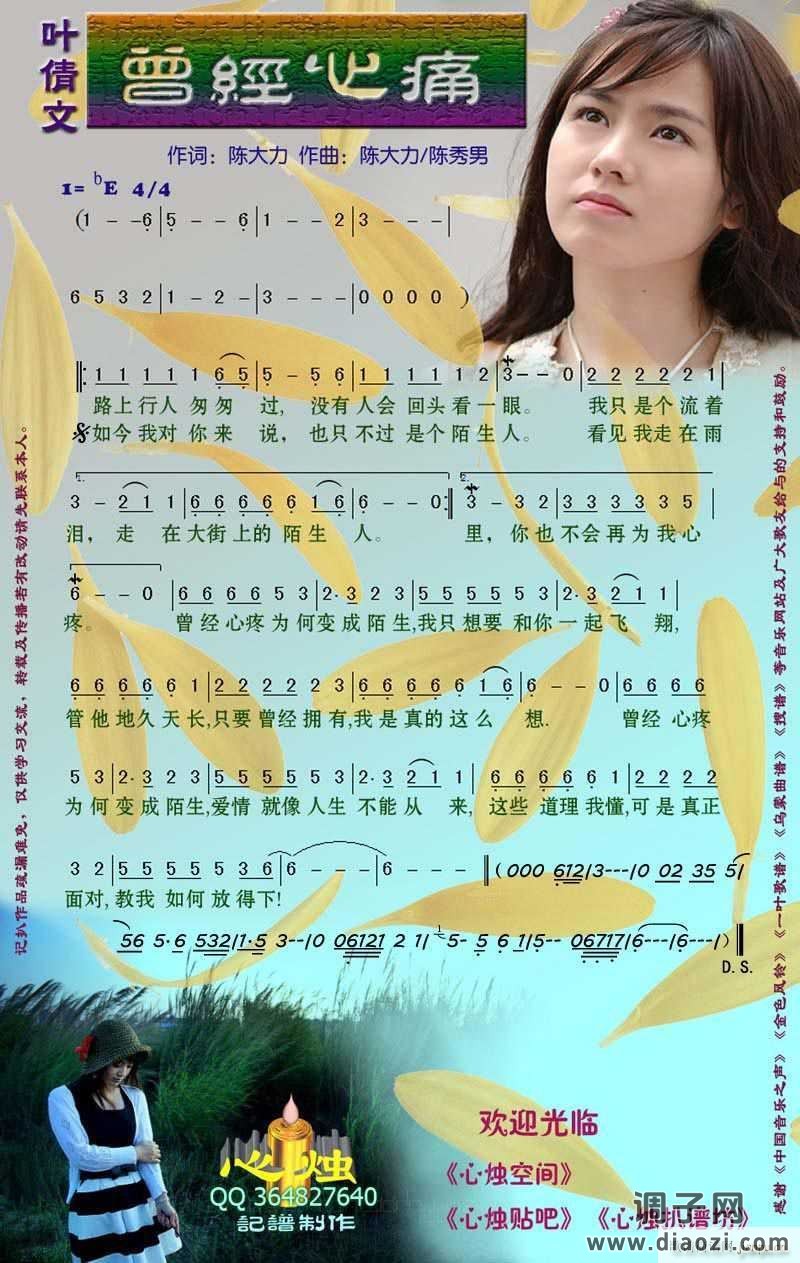 叶倩文
曾經心痛
作词：陈大力 作曲：陈大力/陈秀男
1= bE 4/4
(1 - - 6|5 - - 6|1 - - 2|3 - - -|
6 5 3 2|1 - 2 -|3 - - -|0 0 0 0 )
‖: 1 1 1 1 1 6 5|5 - 5 6|1 1 1 1 1 1 2|3 - - 0|2 2 2 2 2 1|
路上行人 匆匆 过, 没有人会 回头看一眼。 我只是个流着
如今我对 你来 说，也只不过 是个陌生人。 看见我走在雨
1.
2.
3 - 2 1 1|6 6 6 6 6 1 6|6 - - 0:‖3 - 3 2|3 3 3 3 3 5|
泪，走 在大街上的 陌生 人。 里，你也不会再为我心
6 - - 0|6 6 6 6 5 3|2· 3 2 3|5 5 5 5 5 3|2· 3 2 1 1|
疼。 曾经心疼为何变成陌生,我只想要 和你一起飞 翔,
6 6 6 6 6 1|2 2 2 2 2 3|2· 1 6 6 6 6 6 1 6|6 - - 0|6 6 6 6
管他地久天长,只要曾经拥有,我是真的这么 想. 曾经 心疼
5 3|2· 3 2 3|5 5 5 5 5 3|2· 3 2 1 1|6 6 6 6 6 1|2 2 2 2
为何 变成陌生,爱情 就像人生 不能从 来, 这些 道理我懂,可是真正
3 2|5 5 5 5 5 3 6|6 - - -|6 - - -‖(000 612|3---|0 02 35 5|
面对,教我 如何 放得下!
56 5·6 532|1·5 3--|0 06121 2 1|5- 5 6 1|5-- 06717|6---|6---)‖
D.S.
记扒作品疏漏难免，仅供学习交流，转载及传播若有改动请先联系本人。
感谢《中国音乐之声》《金色风铃》《一叶歌谱》《乌蒙曲谱》《搜谱》等音乐网站及广大歌友给与的支持和鼓励。
心烛
QQ 364827640
記譜制作
欢迎光临
《心烛空间》
《心烛贴吧》《心烛扒谱坊》
调子网
www.diaozi.com